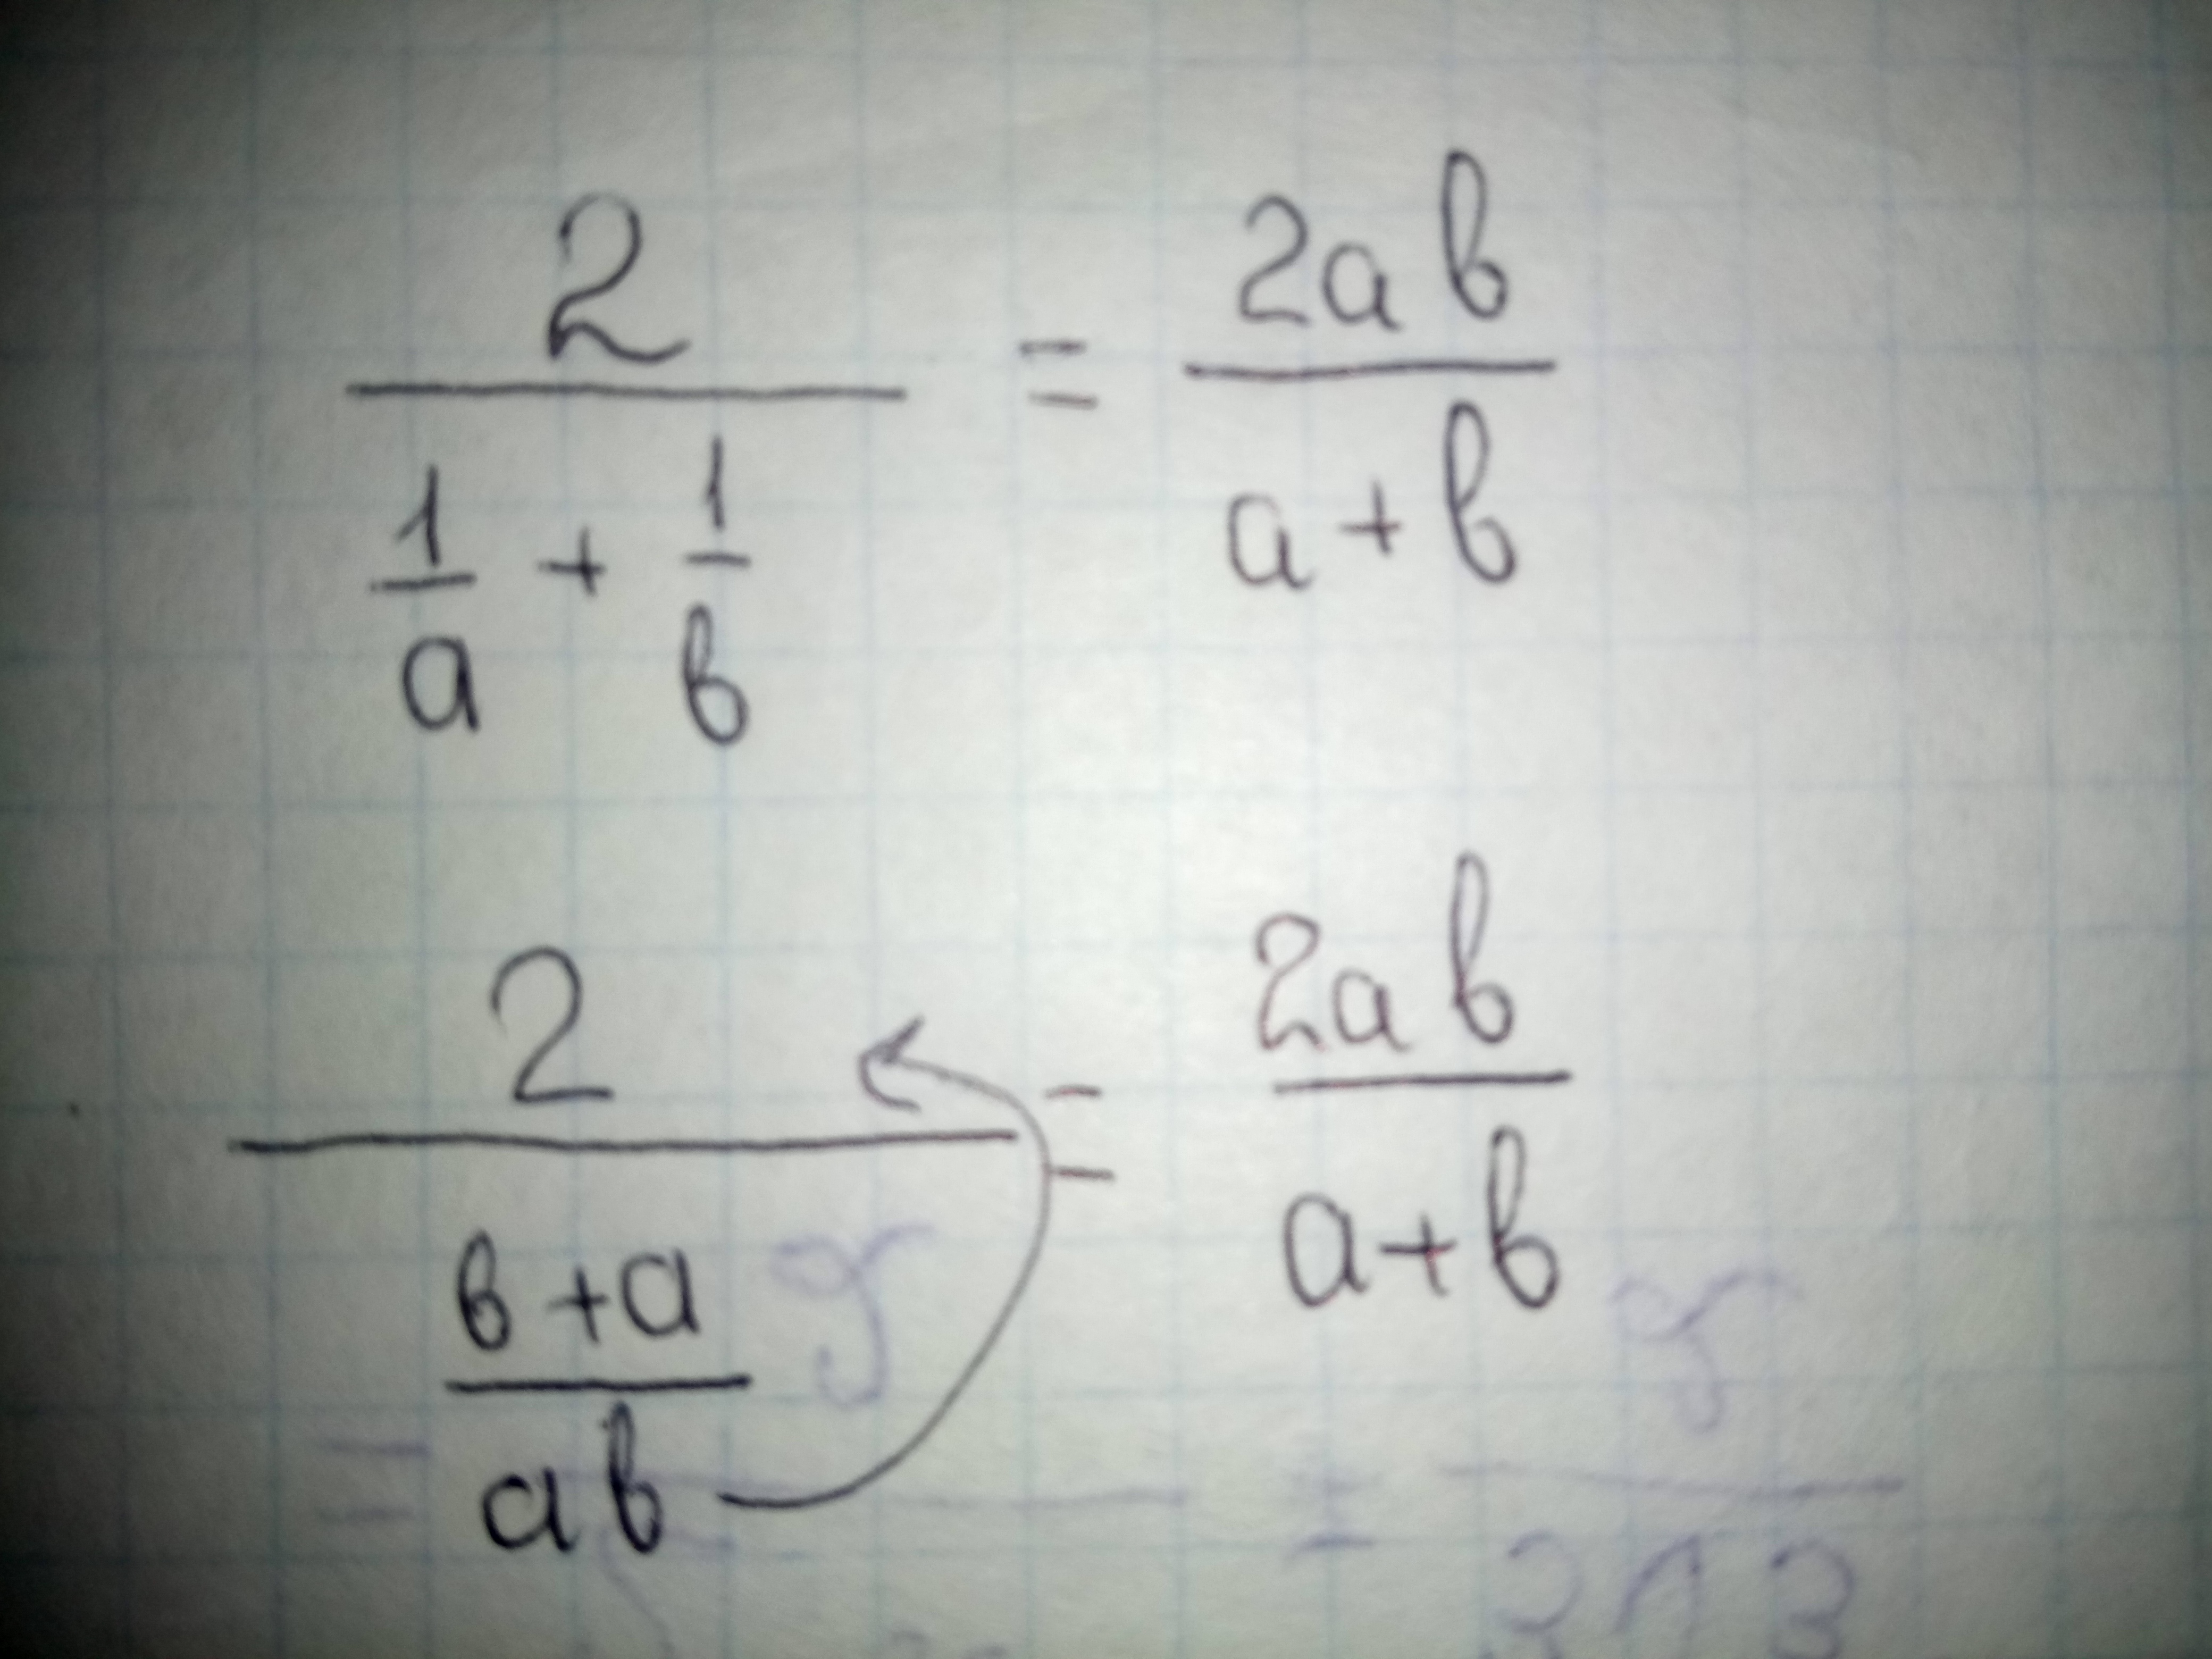 2 / (1/a + 1/b) = 2ab / (a + b)
2 / ((b + a) / ab) = 2ab / (a + b)